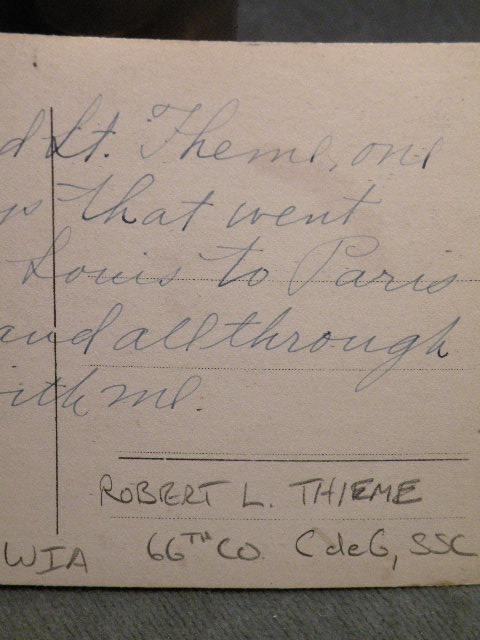 d Lt. Theme, one
ys that went
Louis to Paris
and all through
ith me.
ROBERT L. THIEME
WIA 66TH CO. C de G, SSC